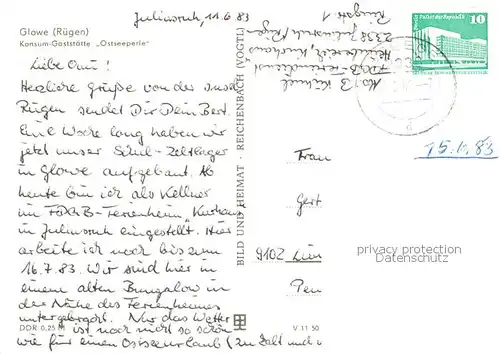 Juliusruh, 11.6.83
Glowe (Rügen)
Konsum-Gaststätte „Ostseeperle"
Liebe Omi!
Herzliche Grüße von der Insel
Rügen sendet Dir Dein Bert.
Eine Woche lang haben wir
jetzt unser Schul-Zeltlager
in Glowe aufgebaut. Ab
heute bin ich als Kellner
im FDGB-Ferienheim „Kurhaus
in Juliusruh eingestellt. Hier
arbeite ich noch bis zum
16.7.83. Wir sind hier in
einem alten Bungalow in
der Nähe des Ferienheimes
untergebracht. Nur das Wetter
ist noch nicht so schön
wie für einen Ostseeurlaub (zu kalt und
DDR 0,25 M
V 11 50
BILD UND HEIMAT · REICHENBACH (VOGTL)
FDGB-Ferienheim
Kurhaus
2332 Juliusruh/Rügen
Ringstr. 1
Palast der Republik
10
15.6.83
Frau
Gert
9102
privacy protection